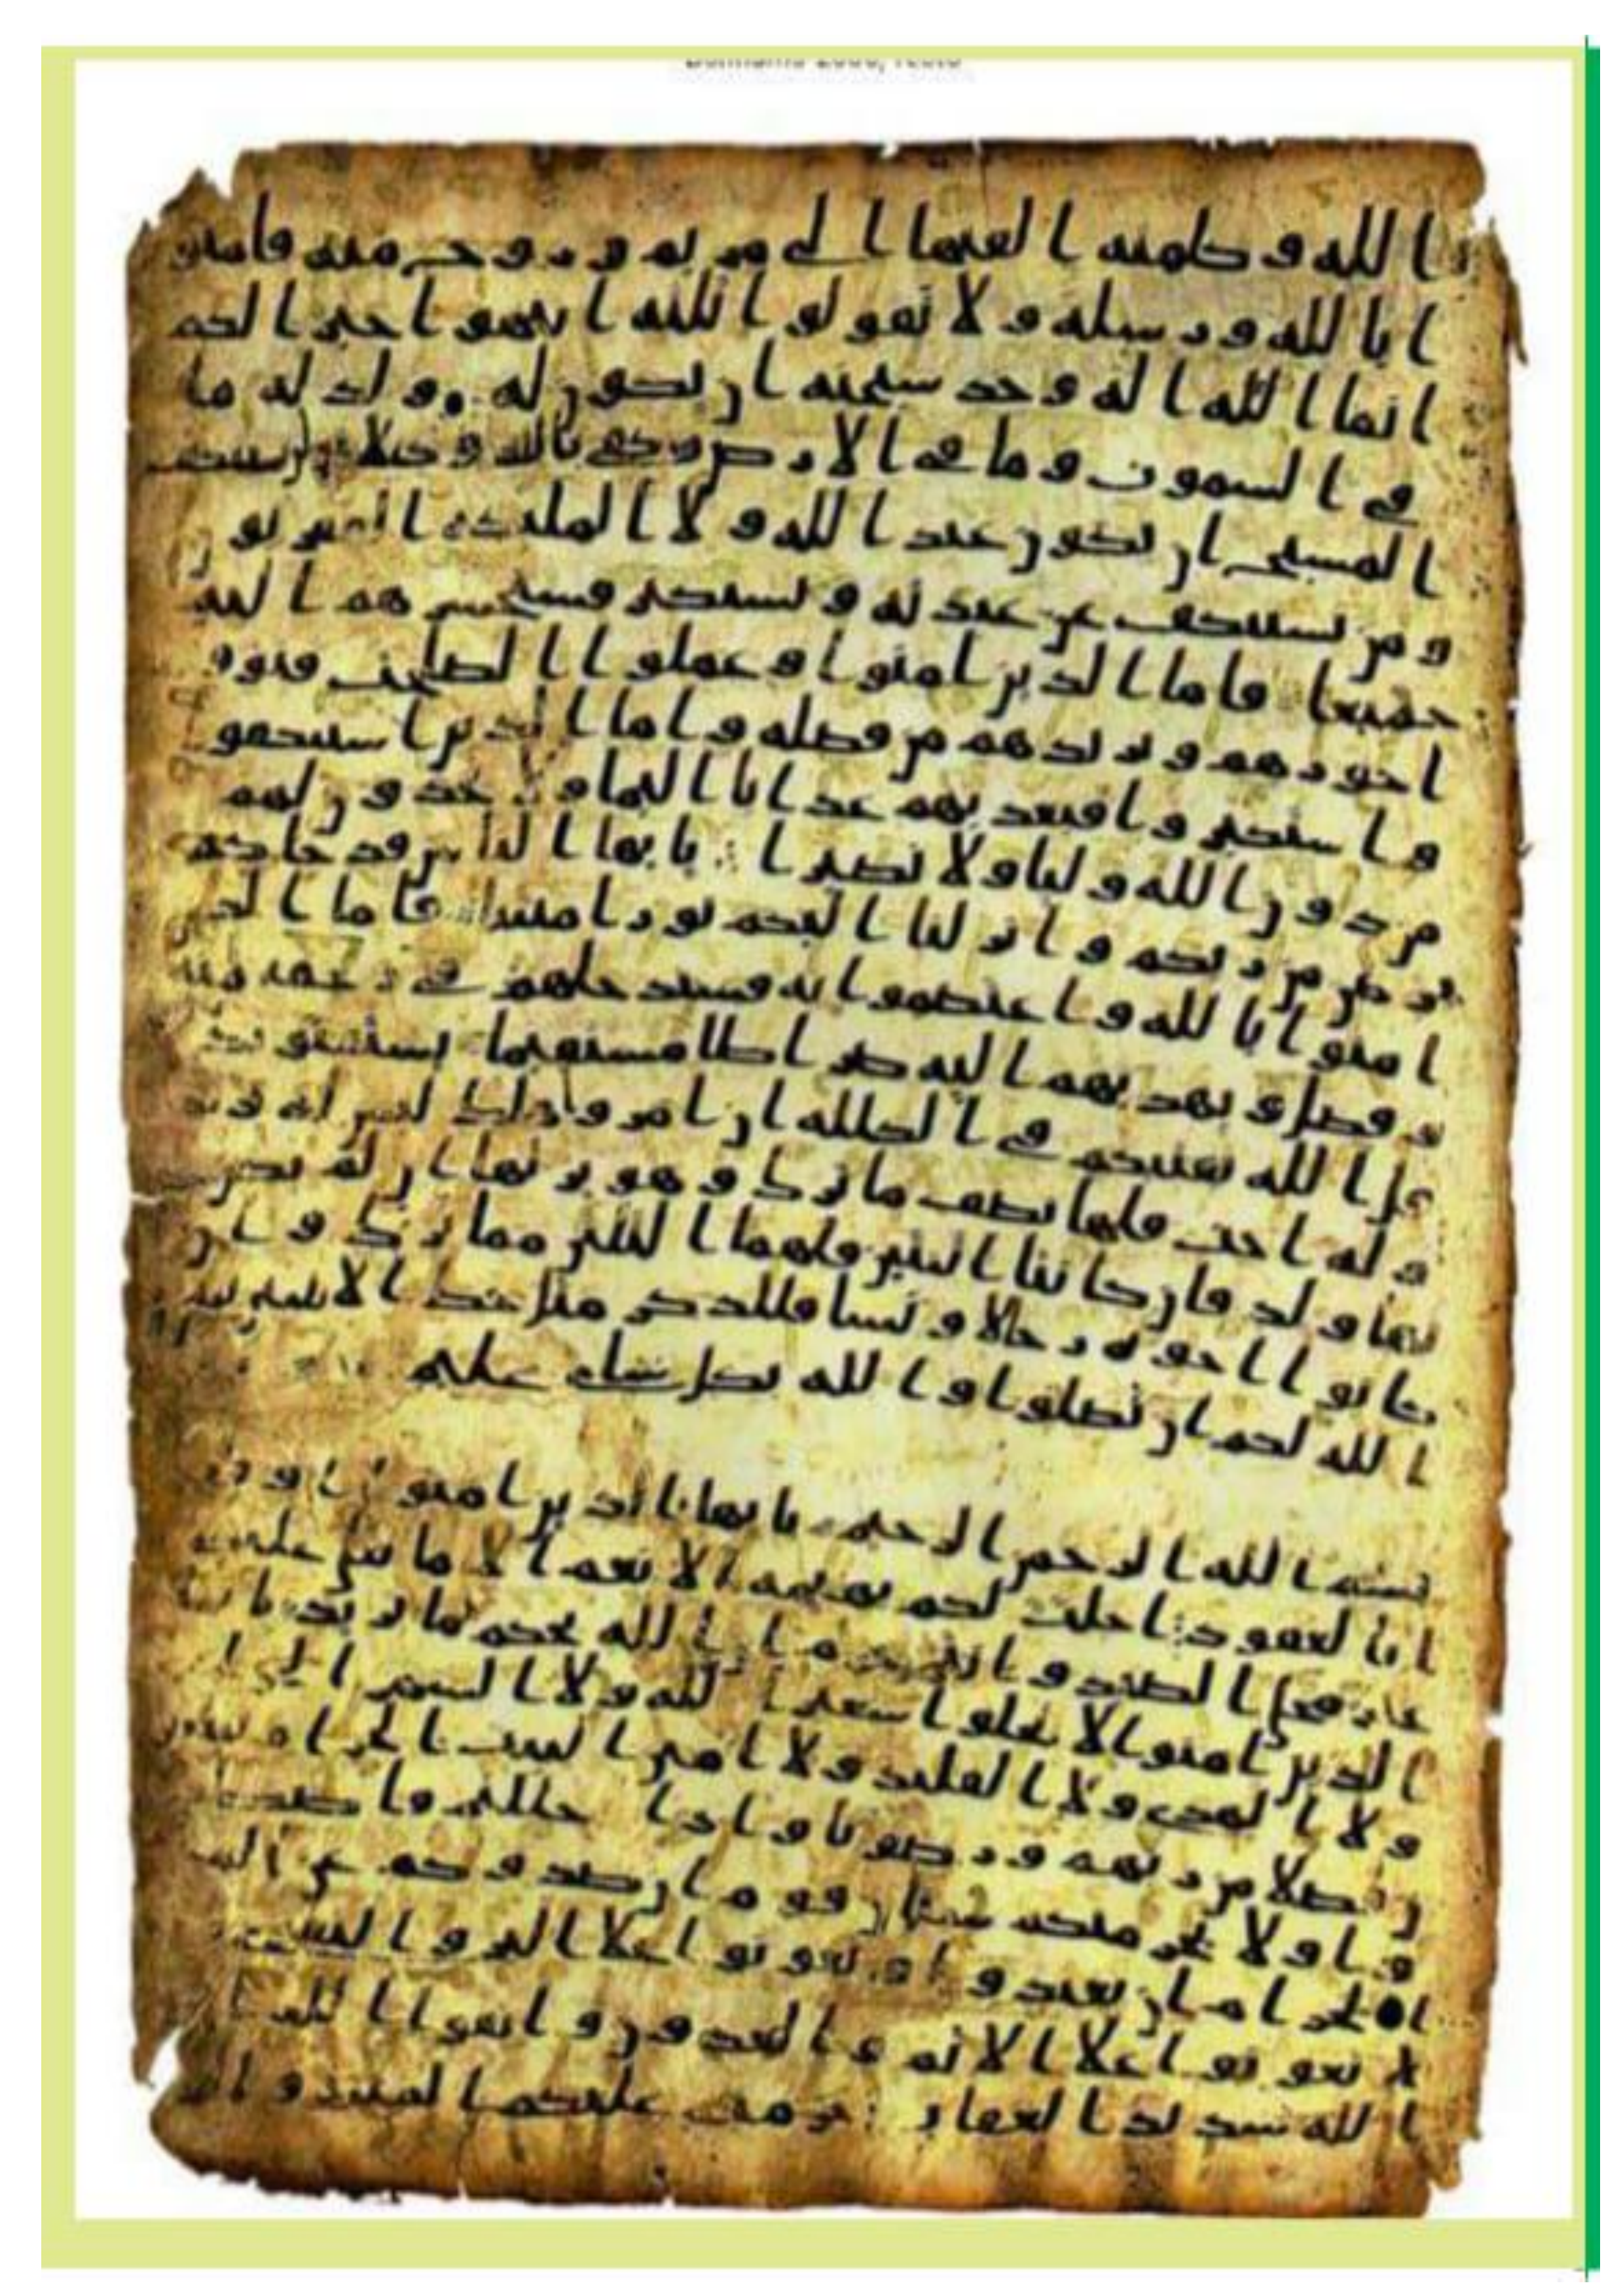 الله وكلمته القيها الى مريم وروح منه فامنو
ا بالله ورسله ولا تقولوا ثلثه انتهوا خيرا لكم
انما الله اله وحد سبحنه ان يكون له ولد له ما
في السموت وما في الارض وكفى بالله وكيلا لن يستنكف
المسيح ان يكون عبدا لله ولا الملئكه المقربو
ومن يستنكف عن عبدته ويستكبر فسيحشرهم اليه
جميعا فاما الذين امنوا وعملوا الصلحت فيوف
اجورهم ويزيدهم من فضله واما الذين استنكفو
واستكبروا فيعذبهم عذابا اليما ولا يجدون لهم
من دون الله وليا ولا نصيرا يايها الناس قد جاكم
برهن من ربكم وانزلنا اليكم نورا مبينا فاما الذين
امنوا بالله واعتصموا به فسيدخلهم في رحمه منه
وفضل ويهديهم اليه صرطا مستقيما يستفتونك
قل الله يفتيكم في الكلله ان امرو هلك ليس له ولد
وله اخت فلها نصف ما ترك وهو يرثها ان لم يكن
لها ولد فان كانتا اثنتين فلهما الثلثن مما ترك وان
كانوا اخوه رجالا ونسا فللذكر مثل حظ الانثيين
الله لكم ان تضلوا والله بكل شاي عليم
بسم الله الرحمن الرحيم يايها الذين امنوا اوفو
ا بالعقود احلت لكم بهيمه الانعم الا ما يتلى عليكم
غير محلي الصيد وانتم حرم ان الله يحكم ما يريد يايها
الذين امنوا لا تحلوا شعير الله ولا الشهر
ولا الهدى ولا القليد ولا امين البيت الحرام يبتغون
فضلا من ربهم ورضونا واذا حللتم فاصطد
وا ولا يجرمنكم شنان قوم ان صدوكم عن
الحرام ان تعتدوا وتعونوا على البر والتقوى
لا تعونوا على الاثم والعدون واتقوا الله
الله شديد العقاب حرمت عليكم الميته